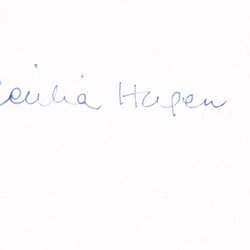 Cecilia Hagen